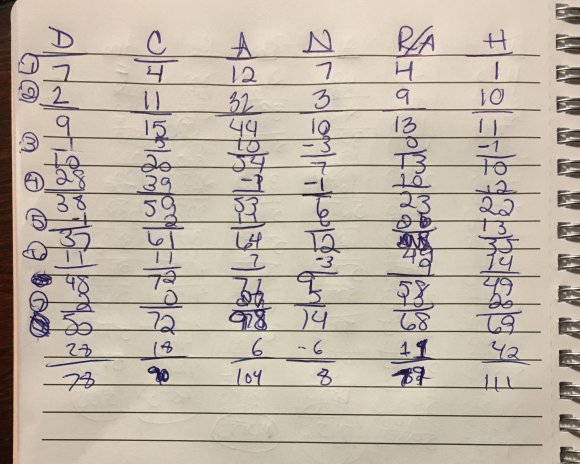 D C A N R/A H
① 7 4 12 7 4 1
② 2 11 32 3 9 10
9 15 44 10 13 11
③ 1 5 10 -3 0 -1
10 20 54 7 13 10
④ 28 39 -1 -1 10 12
38 59 53 6 23 22
⑤ -1 2 11 6 13
37 61 64 12 49 35
11 11 7 -3 9 14
48 72 71 9 58 49
2 0 5 10 20
50 72 98 14 68 69
28 18 6 -6 42
78 90 104 8 111